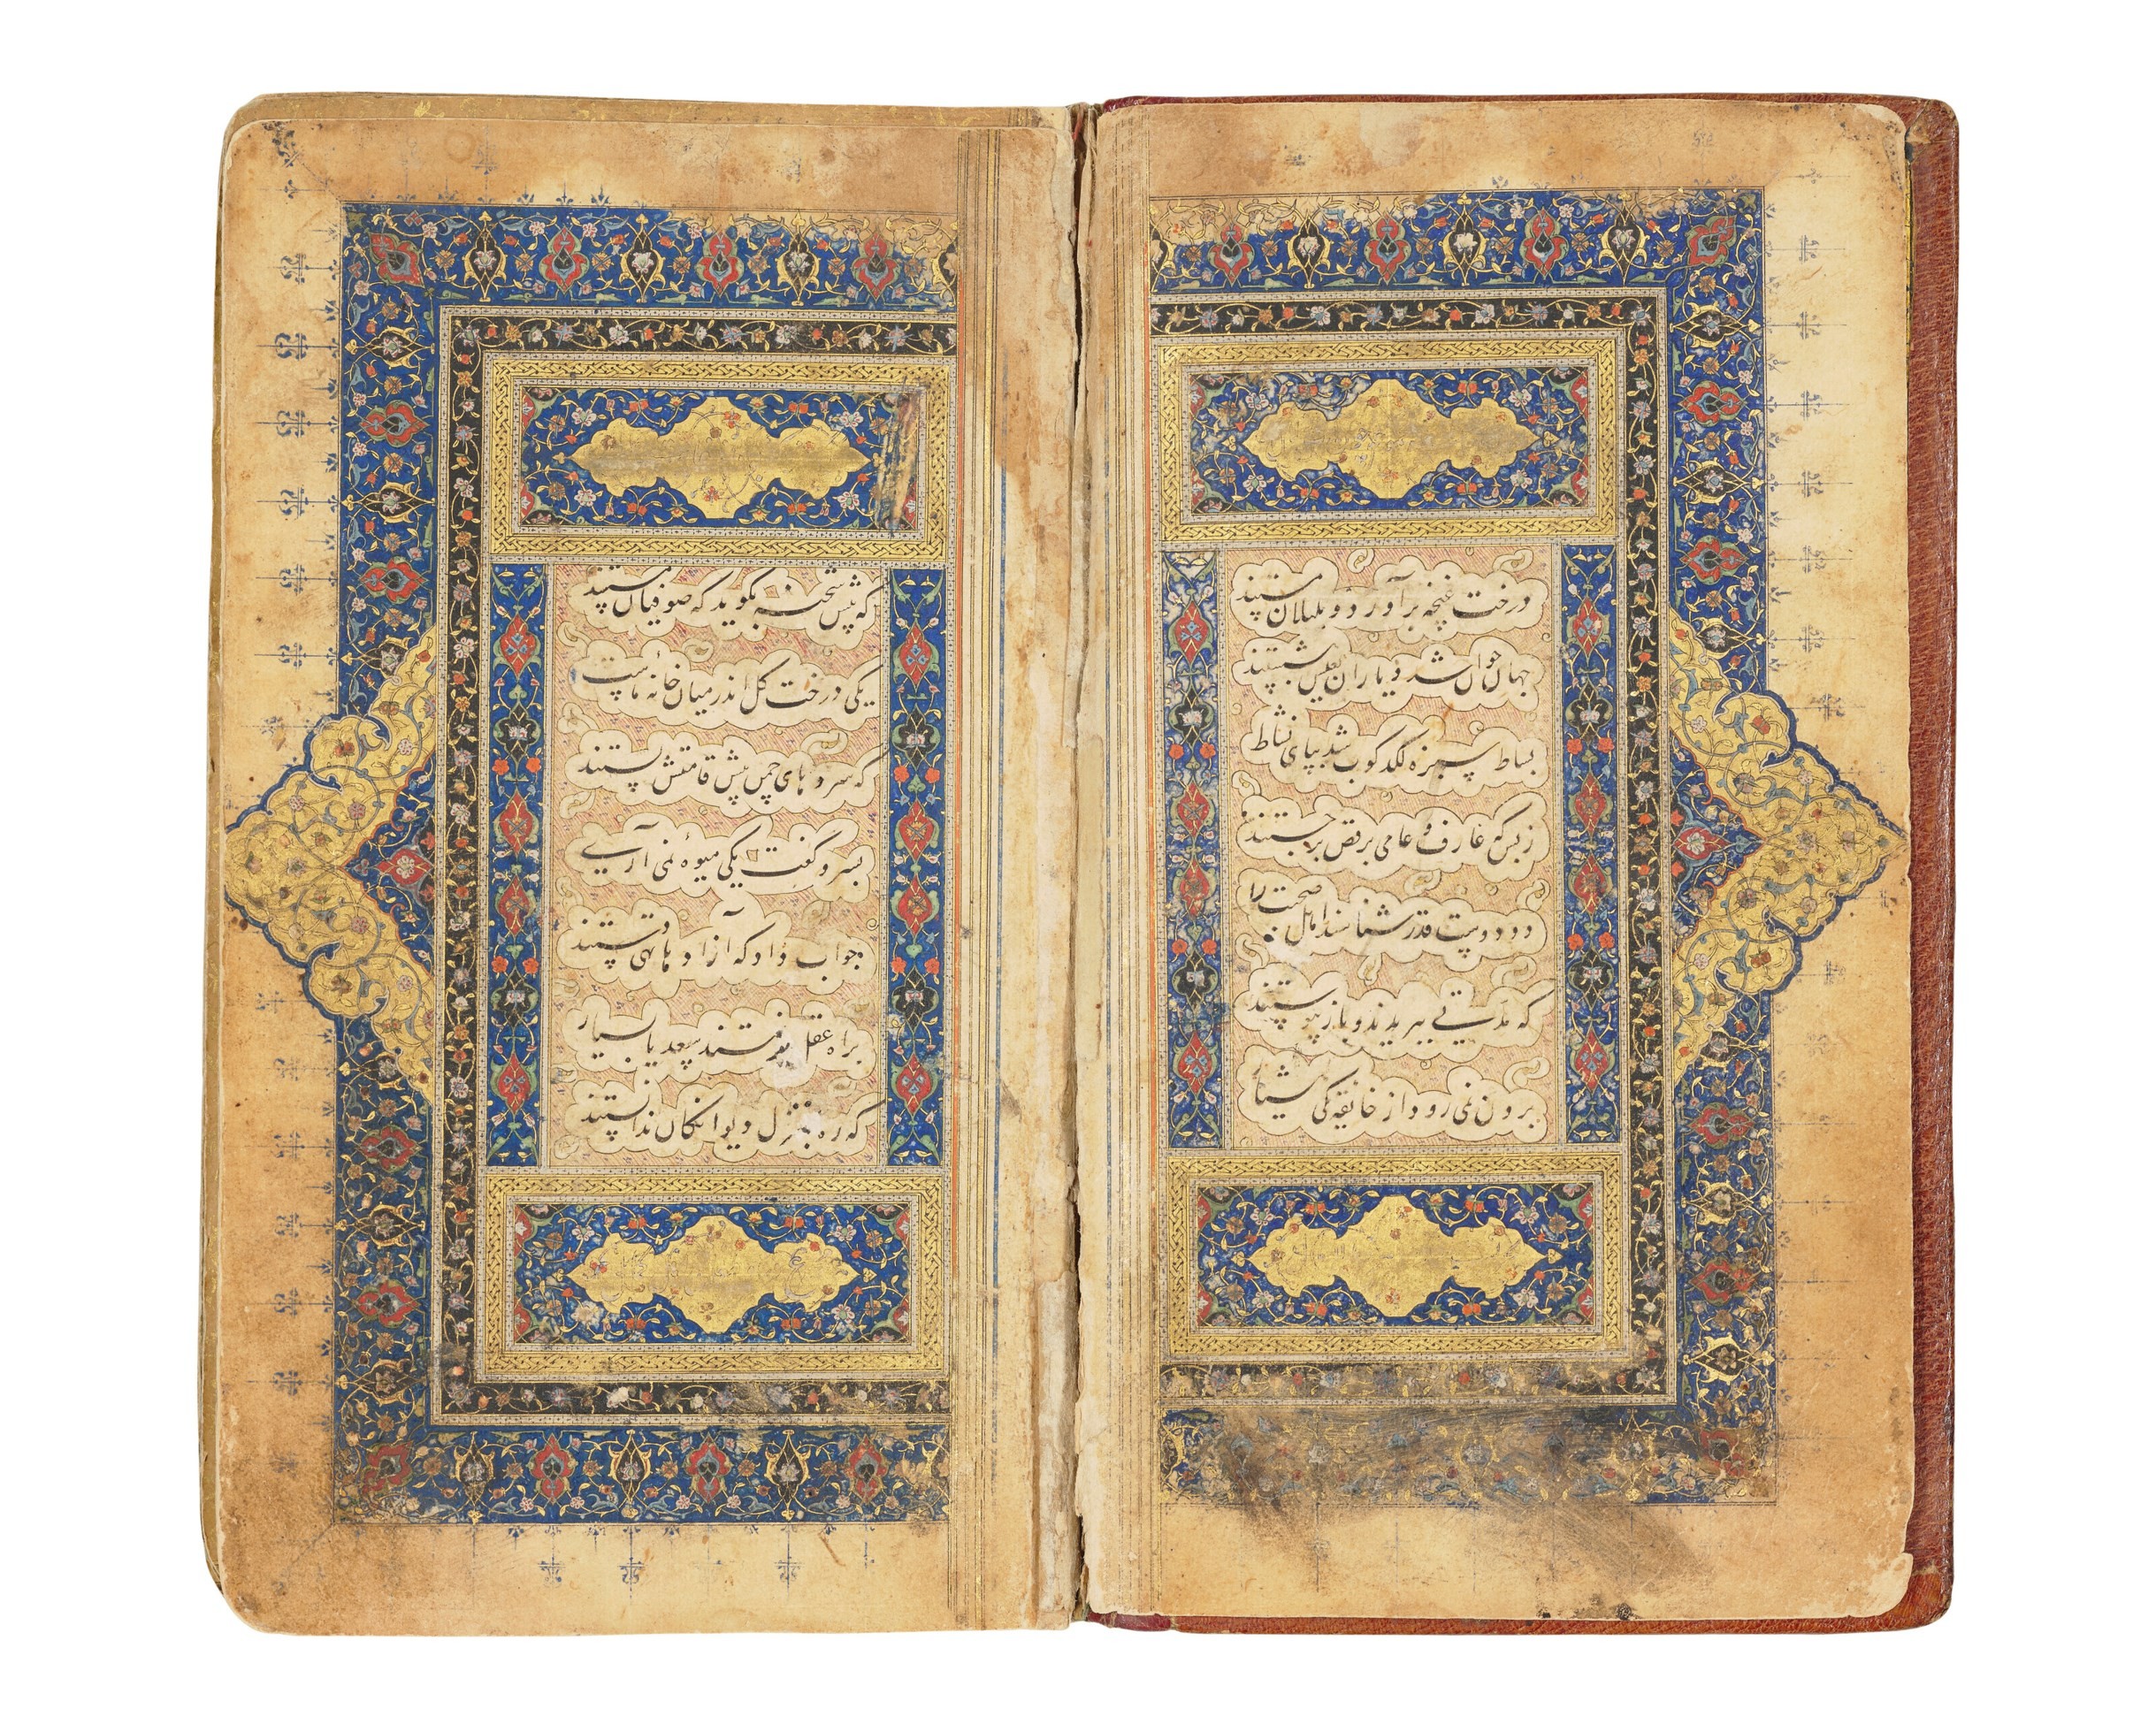 درخت غنچه برآورد و بلبلان مستند
جهان جوان شد و یاران بعیش بنشستند
بساط سبزه لگدکوب شد بپای نشاط
زبس که عارف و عامی برقص برجستند
دو دوست قدر شناسند اهل صحبت را
که مدتی ببریدند و باز پیوستند
برون نمی رود از خانقه یکی هشیار
که پیش شحنه بگوید که صوفیان مستند
یکی درخت گل اندر میان خانهٔ ماست
که سروهای چمن پیش قامتش پستند
بسرو گفت یکی میوهٔ نمی آری
جواب داد که آزادها تهی دستند
براه عقل برفتند سعدیا بسیار
که ره بمنزل دیوانگان ندانستند